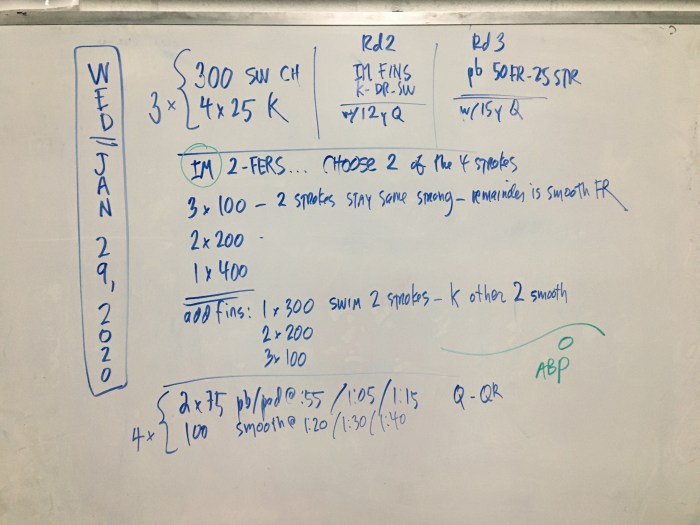 WED JAN 29, 2020
3 x { 300 SW CH
4 x 25 K
Rd 2
IM FINS
K-DR-SW
w/12y Q
Rd 3
pb 50FR-25STR
w/15y Q
IM 2-FERS... CHOOSE 2 of the 4 strokes
3 x 100 - 2 strokes STAY same strong - remainder is smooth FR
2 x 200
1 x 400
add fins: 1 x 300 SWIM 2 strokes - K other 2 smooth
2 x 200
3 x 100
ABP
4 x { 2 x 75 pb/pad @ :55 / 1:05 / 1:15 Q - QR
100 smooth @ 1:20 / 1:30 / 1:40